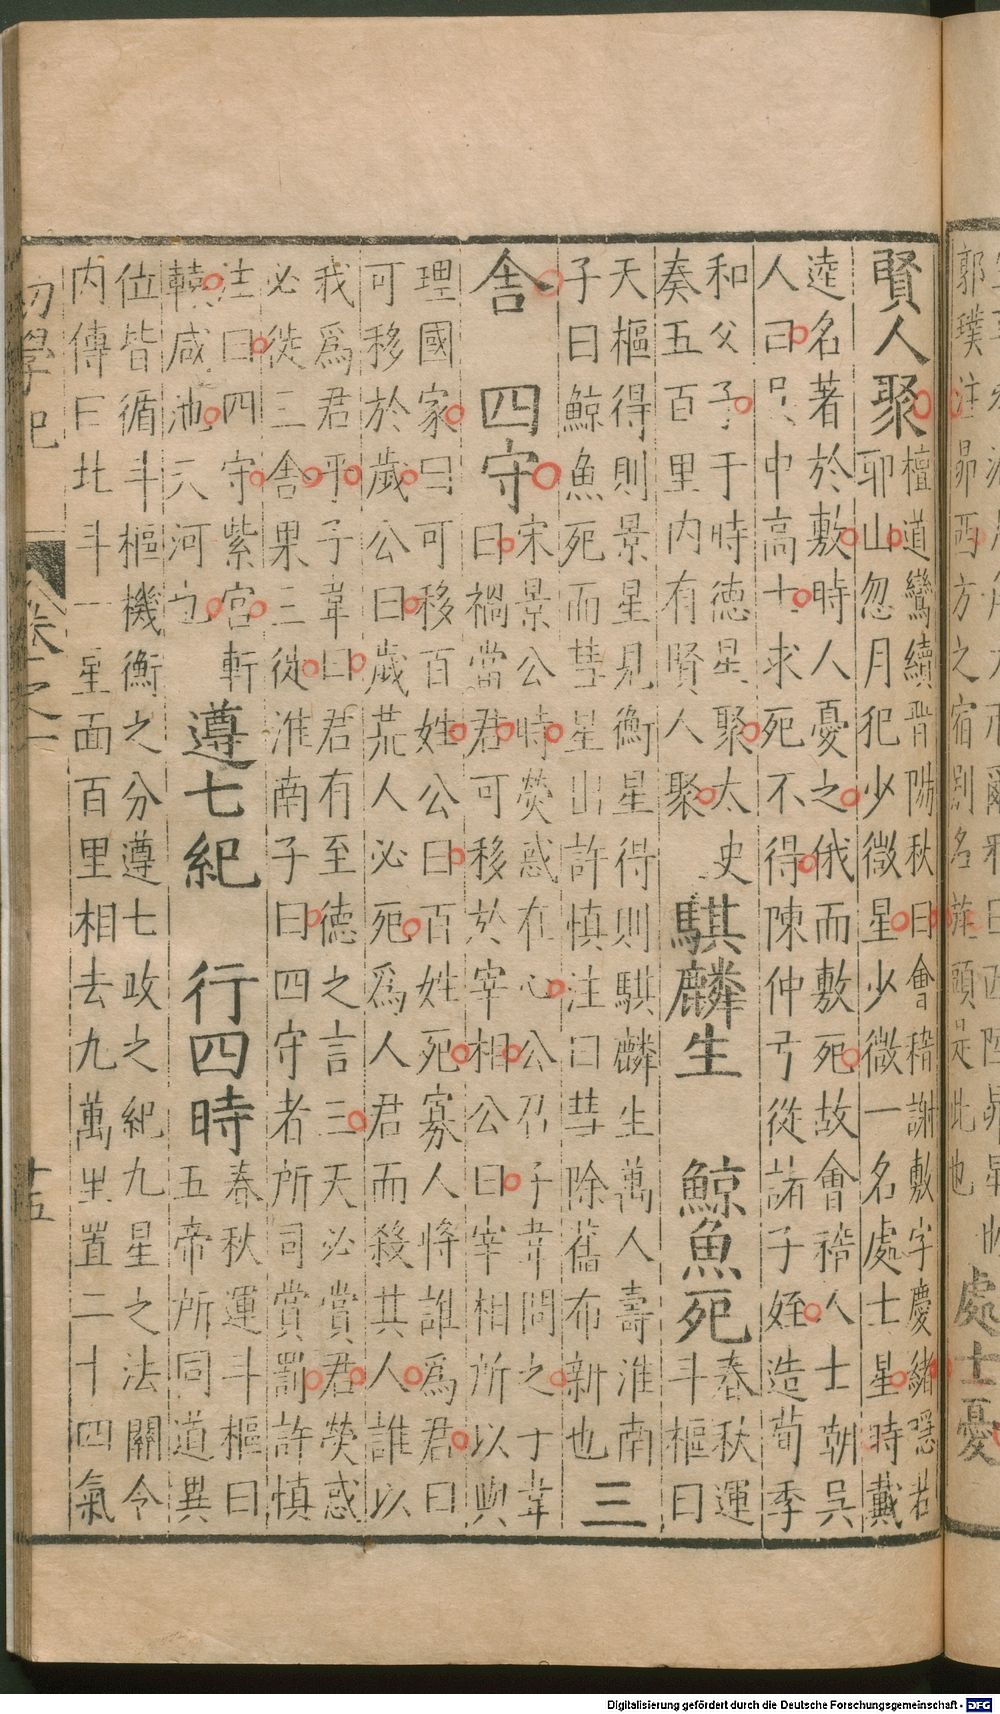 郭璞注昴西方之宿別名旄頭是此也 處士憂
賢人聚
檀道鸞續晉陽秋曰會稽謝敷字慶緒隱若
耶山忽月犯少微星少微一名處士星時戴
逵名著於敷時人憂之俄而敷死故會稽人士嘲吳
人曰吳中高士求死不得陳仲弓從諸子姪造荀季
和父子于時德星聚太史
奏五百里内有賢人聚
騏麟生 鯨魚死
春秋運
斗樞曰
天樞得則景星見衡星得則騏麟生萬人壽淮南
子曰鯨魚死而彗星出許慎注曰彗除舊布新也
三
舍 四守
宋景公時熒惑在心公召子韋問之于韋
曰禍當君可移於宰相公曰宰相所以與
理國家曰可移百姓公曰百姓死寡人將誰爲君曰
可移於歲公曰歲荒人必死爲人君而殺其人誰以
我爲君乎子韋曰君有至德之言三天必賞君熒惑
必徙三舍果三徙淮南子曰四守者所司賞罰許慎
注曰四守紫宮軒
轅咸池天河也
遵七紀 行四時
春秋運斗樞曰
五帝所同道異
位皆循斗樞機衡之分遵七政之紀九星之法關令
内傳曰北斗一星面百里相去九萬里置二十四氣
初學記 卷之一 十五
Digitalisierung gefördert durch die Deutsche Forschungsgemeinschaft - DFG